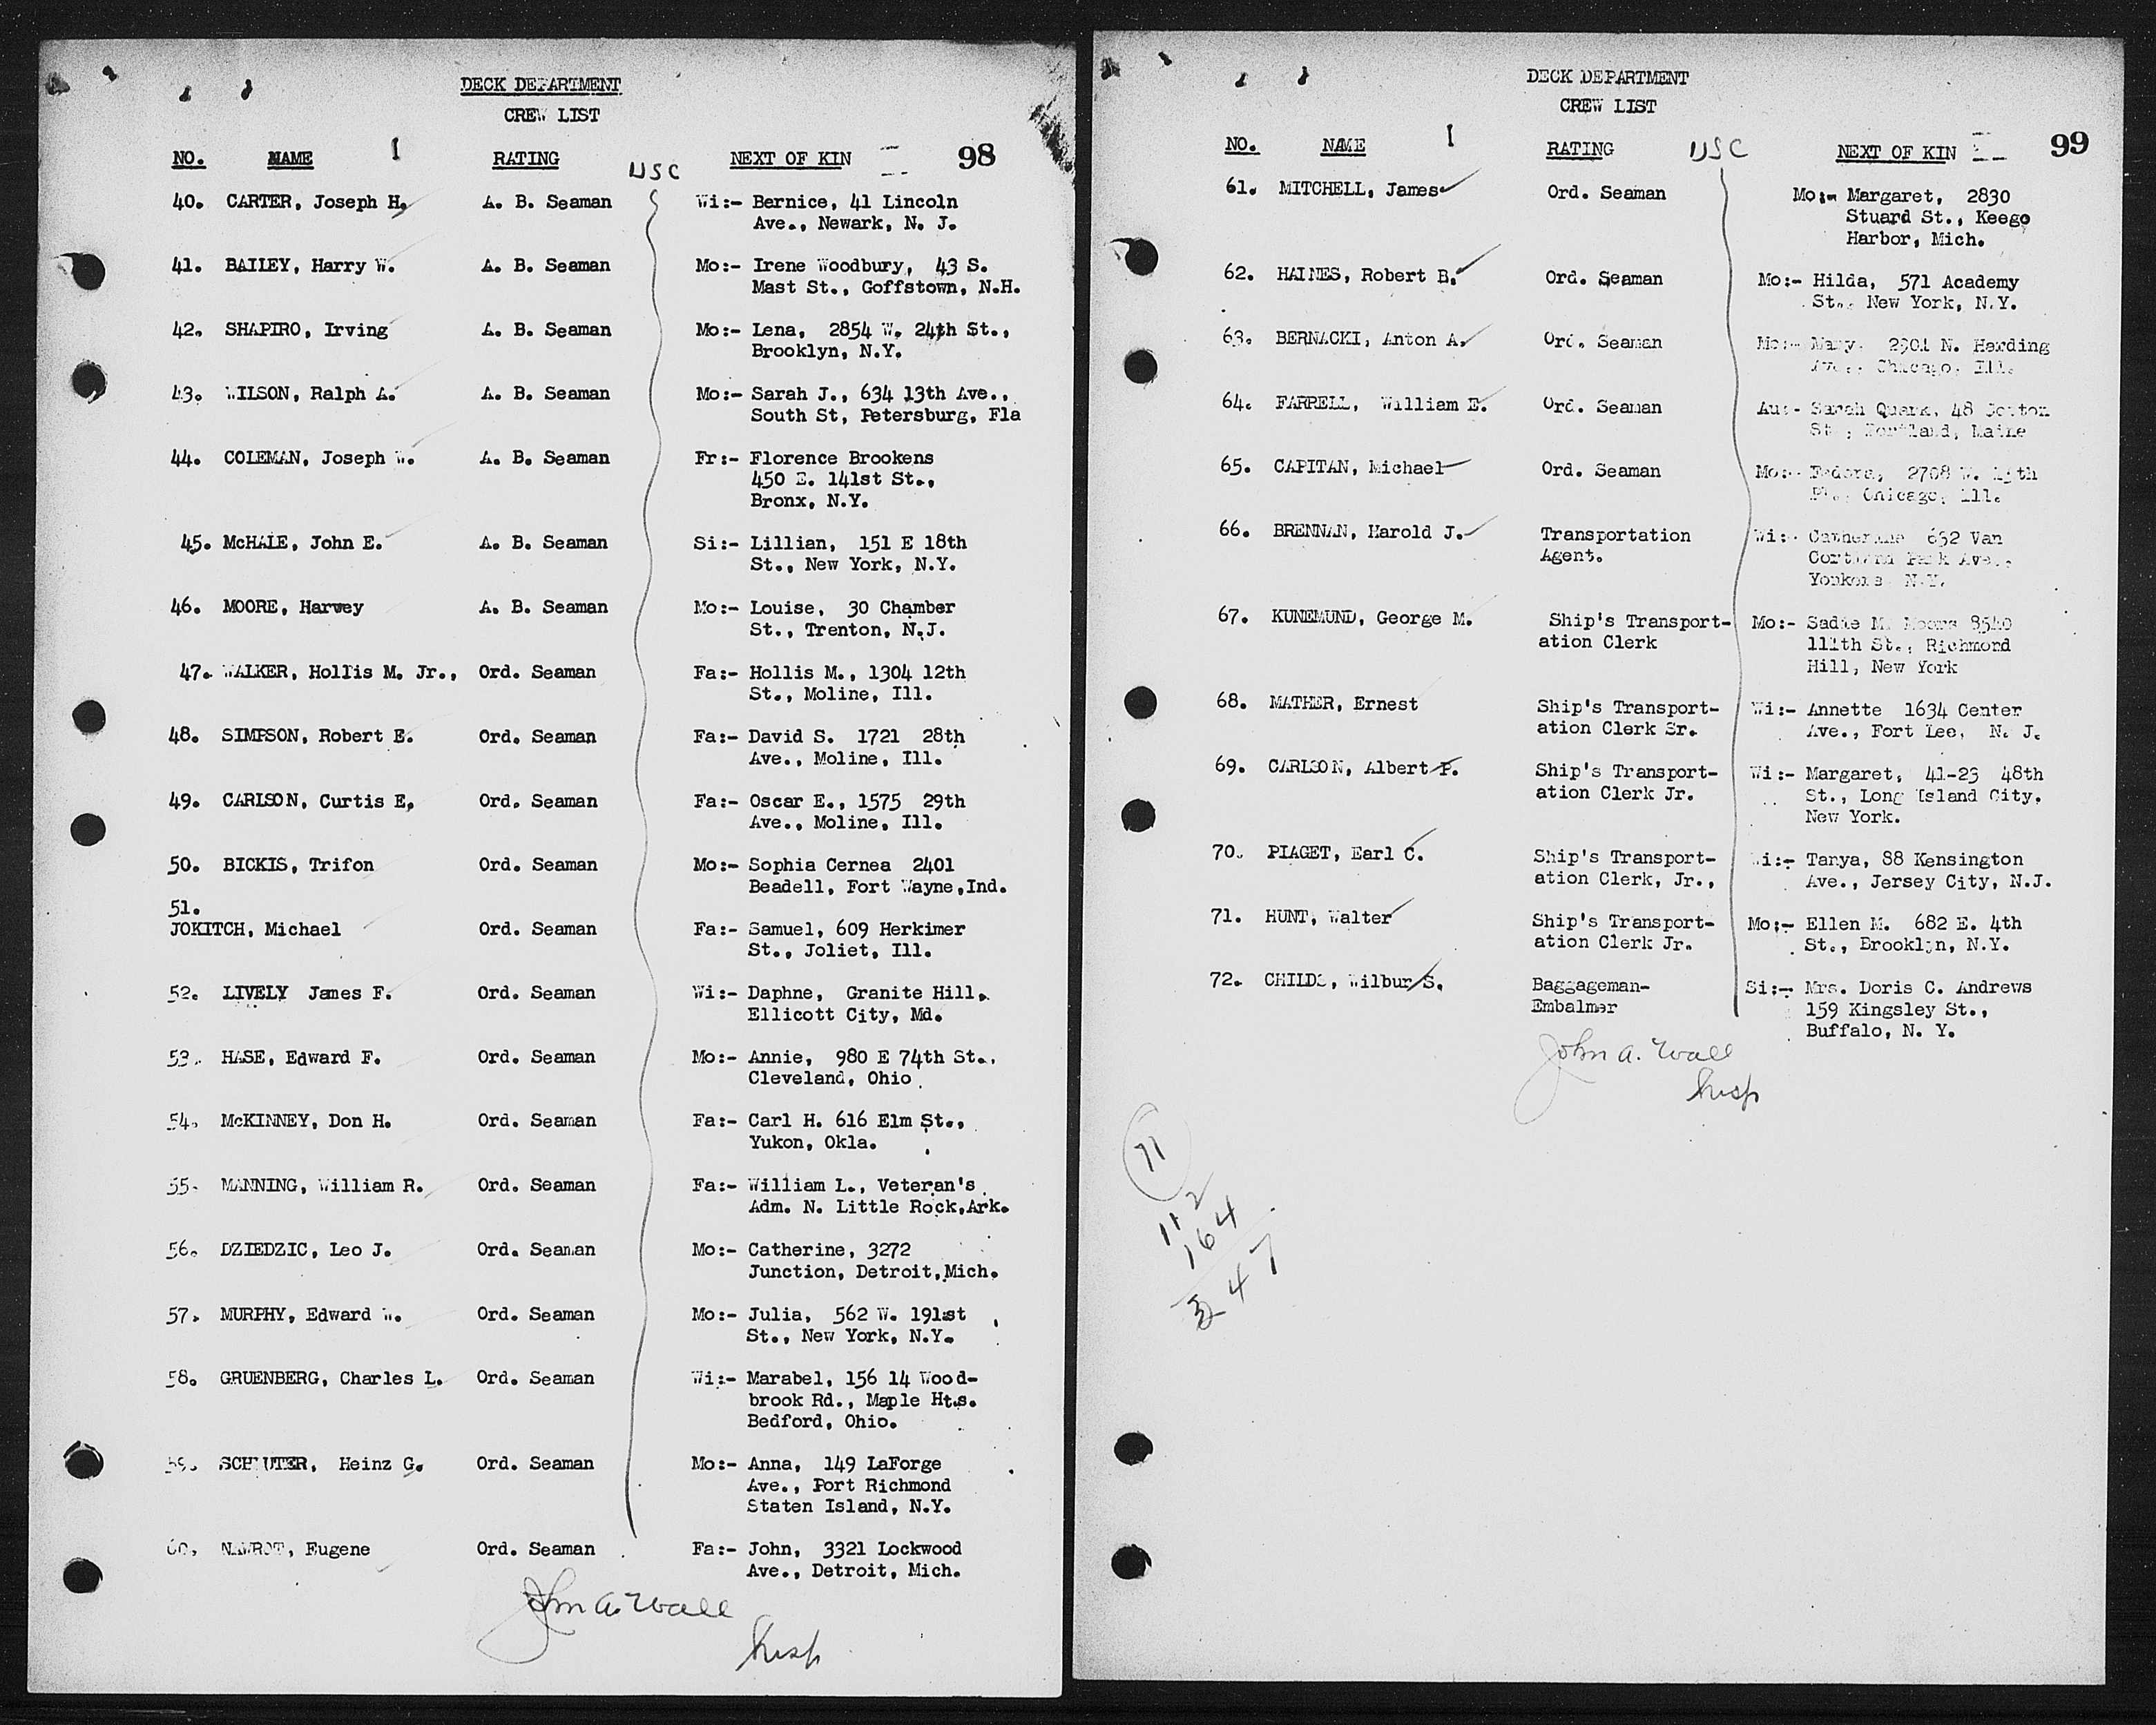 DECK DEPARTMENT
CREW LIST
NO. NAME 1 RATING USC NEXT OF KIN 98
40. CARTER, Joseph H. A. B. Seaman Wi:- Bernice, 41 Lincoln
Ave., Newark, N. J.
41. BAILEY, Harry W. A. B. Seaman Mo:- Irene Woodbury, 43 S.
Mast St., Goffstown, N.H.
42. SHAPIRO, Irving A. B. Seaman Mo:- Lena, 2854 W. 24th St.,
Brooklyn, N.Y.
43. WILSON, Ralph A. A. B. Seaman Mo:- Sarah J., 634 13th Ave.,
South St, Petersburg, Fla
44. COLEMAN, Joseph W. A. B. Seaman Fr:- Florence Brookens
450 E. 141st St.,
Bronx, N.Y.
45. McHALE, John E. A. B. Seaman Si:- Lillian, 151 E 18th
St., New York, N.Y.
46. MOORE, Harvey A. B. Seaman Mo:- Louise, 30 Chamber
St., Trenton, N.J.
47. WALKER, Hollis M. Jr., Ord. Seaman Fa:- Hollis M., 1304 12th
St., Moline, Ill.
48. SIMPSON, Robert E. Ord. Seaman Fa:- David S. 1721 28th
Ave., Moline, Ill.
49. CARLSON, Curtis E, Ord. Seaman Fa:- Oscar E., 1575 29th
Ave., Moline, Ill.
50. BICKIS, Trifon Ord. Seaman Mo:- Sophia Cernea 2401
Beadell, Fort Wayne,Ind.
51.
JOKITCH, Michael Ord. Seaman Fa:- Samuel, 609 Herkimer
St., Joliet, Ill.
52. LIVELY James F. Ord. Seaman Wi:- Daphne, Granite Hill,
Ellicott City, Md.
53. HASE, Edward F. Ord. Seaman Mo:- Annie, 980 E 74th St.,
Cleveland, Ohio.
54. McKINNEY, Don H. Ord. Seaman Fa:- Carl H. 616 Elm St.,
Yukon, Okla.
55. MANNING, William R. Ord. Seaman Fa:- William L., Veteran's
Adm. N. Little Rock,Ark.
56. DZIEDZIC, Leo J. Ord. Seaman Mo:- Catherine, 3272
Junction, Detroit,Mich.
57. MURPHY, Edward W. Ord. Seaman Mo:- Julia, 562 W. 191st
St., New York, N.Y.
58. GRUENBERG, Charles L. Ord. Seaman Wi:- Marabel, 156 14 Wood-
brook Rd., Maple Hts.
Bedford, Ohio.
59. SCHLUTER, Heinz G. Ord. Seaman Mo:- Anna, 149 LaForge
Ave., Port Richmond
Staten Island, N.Y.
60. NAWROT, Eugene Ord. Seaman Fa:- John, 3321 Lockwood
Ave., Detroit, Mich.
John A. Wall
Insp
DECK DEPARTMENT
CREW LIST
NO. NAME 1 RATING USC NEXT OF KIN 99
61. MITCHELL, James Ord. Seaman Mo:- Margaret, 2830
Stuard St., Keego
Harbor, Mich.
62. HAINES, Robert B. Ord. Seaman Mo:- Hilda, 571 Academy
St., New York, N.Y.
63. BERNACKI, Anton A. Ord. Seaman Mo:- Mary. N. Harding
Ave., Chicago, Ill.
64. FARRELL, William E. Ord. Seaman Au:- Sarah 48
St., Portland, Maine
65. CAPITAN, Michael Ord. Seaman Mo:- 2708 W.
Chicago, Ill.
66. BRENNAN, Harold J. Transportation Wi:- Catherine 632 Van
Agent. Cortland Park Ave.,
Yonkers N.Y.
67. KUNEMUND, George M. Ship's Transport- Mo:- Sadie M. 8540
ation Clerk 111th St., Richmond
Hill, New York
68. MATHER, Ernest Ship's Transport- Wi:- Annette 1634 Center
ation Clerk Sr. Ave., Fort Lee, N. J.
69. CARLSON, Albert F. Ship's Transport- Wi:- Margaret, 41-23 48th
ation Clerk Jr. St., Long Island City,
New York.
70. PIAGET, Earl C. Ship's Transport- Wi:- Tanya, 88 Kensington
ation Clerk, Jr., Ave., Jersey City, N.J.
71. HUNT, Walter Ship's Transport- Mo:- Ellen M. 682 E. 4th
ation Clerk Jr. St., Brooklyn, N.Y.
72. CHILDS, Wilbur S. Baggageman- Si:- Mrs. Doris C. Andrews
Embalmer 159 Kingsley St.,
Buffalo, N. Y.
John A. Wall
Insp
71
112
164
347